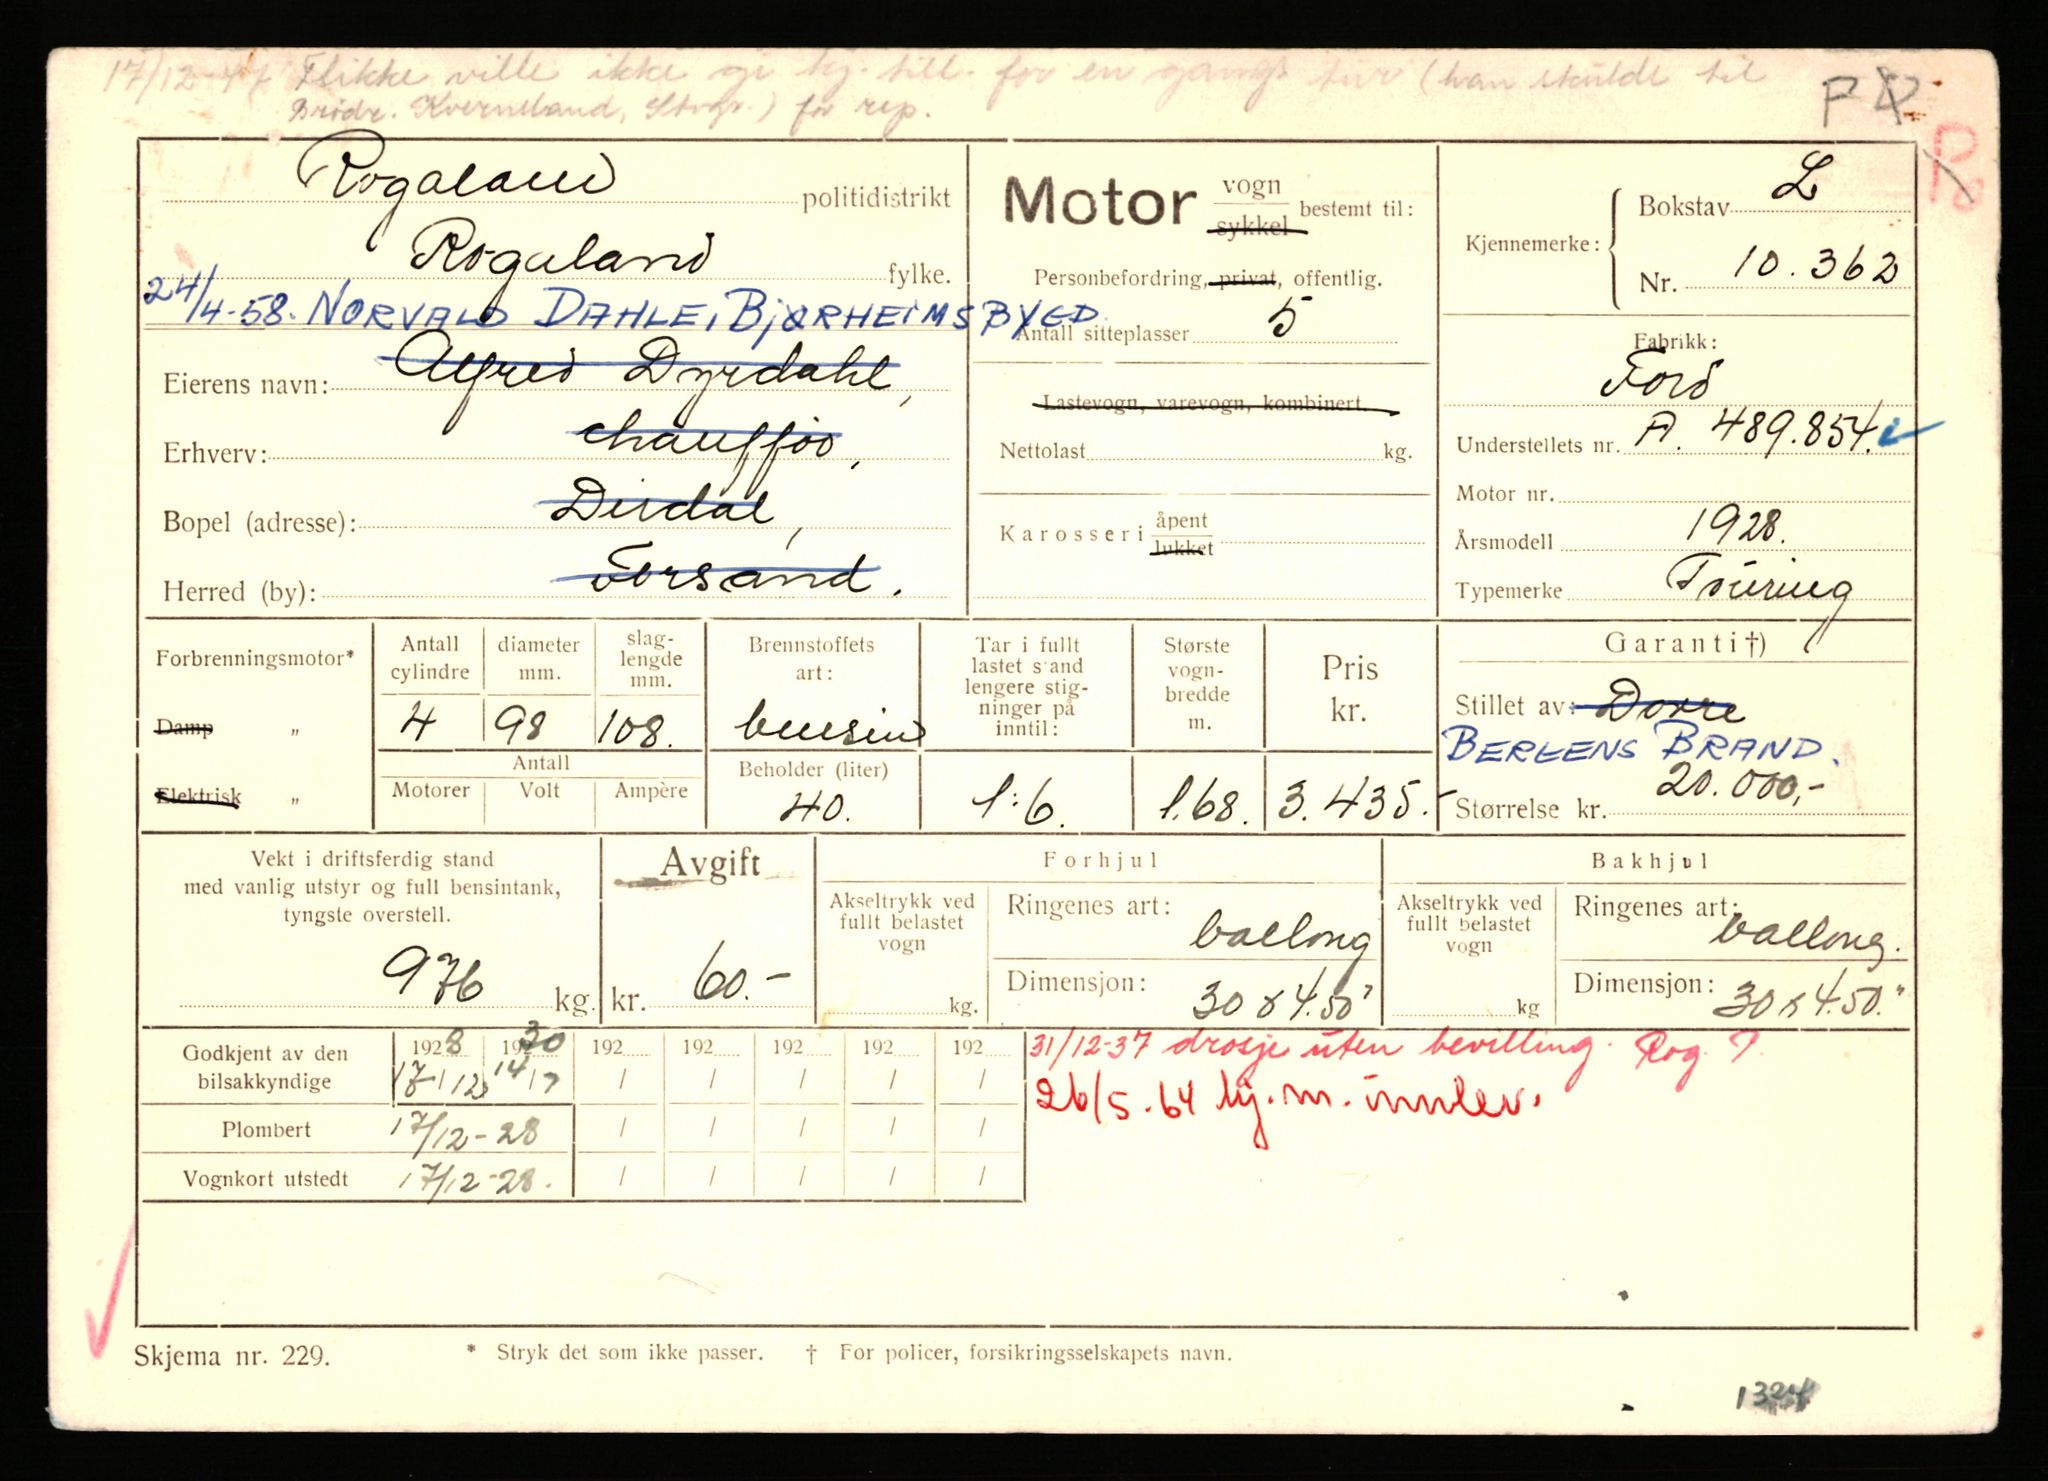 17/12-47 Flikke ville ikke gi kj. till. for en gangs tur (han skulde til
Brødr. Kverneland, Stvgr.) for rep.
Rogaland politidistrikt
Rogaland fylke.
24/4-58. NORVALD DAHLE, BJØRHEIMSBYGD.
Eierens navn: Alfred Dyrdahl,
Erhverv: chauffør,
Bopel (adresse): Dirdal,
Herred (by): Forsand.
Motor vogn
sykkel bestemt til:
Personbefordring, privat, offentlig.
Antall sitteplasser 5
Lastevogn, varevogn, kombinert
Nettolast kg.
Karosseri åpent
lukket
Kjennemerke: Bokstav L
Nr. 10.362
Fabrikk:
Ford
Understellets nr. A. 489.854.
Motor nr.
Årsmodell 1928.
Typemerke Touring
Forbrenningsmotor*
Damp "
Elektrisk "
Antall cylindre
4
diameter mm.
98
slaglengde mm.
108.
Antall
Motorer Volt Ampère
Brennstoffets art:
bensin
Beholder (liter)
40.
Tar i fullt
lastet stand
lengere stig-
ninger på
inntil:
1:6.
Største
vogn-
bredde
m.
1.68.
Pris
kr.
3.435.-
Garanti†)
Stillet av: Dovre
BERGENS BRAND.
Størrelse kr. 20.000,-
Vekt i driftsferdig stand
med vanlig utstyr og full bensintank,
tyngste overstell.
976 kg.
Avgift
kr. 60.-
Forhjul
Akseltrykk ved
fullt belastet
vogn
kg.
Ringenes art:
ballong
Dimensjon:
30 x 4.50"
Bakhjul
Akseltrykk ved
fullt belastet
vogn
kg
Ringenes art:
ballong.
Dimensjon:
30 x 4.50."
Godkjent av den
bilsakkyndige
1928 1930 192 192 192 192 192
17/12 14/7 / / / / /
Plombert 17/12-28 / / / / /
Vognkort utstedt 17/12-28. / / / / /
31/12-37 drosje uten bevilling. Rog. ?
26/5.64 kj.m. innlev.
Skjema nr. 229.
* Stryk det som ikke passer. † For policer, forsikringsselskapets navn.
1324